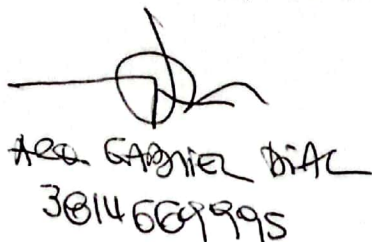 GABRIEL DIAZ
3814669995